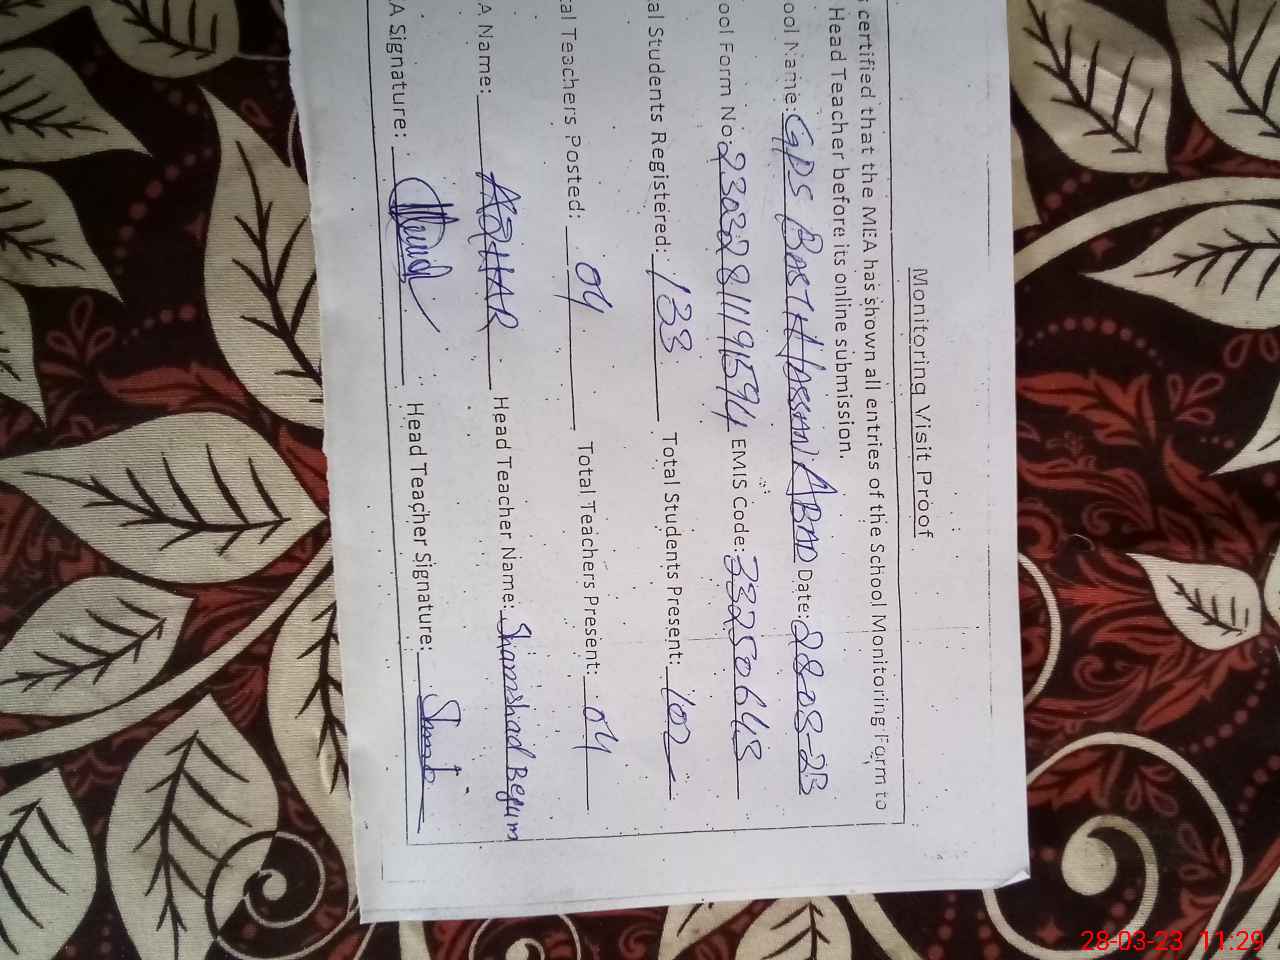 Monitoring Visit Proof
s certified that the MEA has shown all entries of the School Monitoring Form to
Head Teacher before its online submission.
ool Name: GPS BASTI HASSAN ABAD Date: 28-03-23
ool Form No: EMIS Code: 33250643
al Students Registered: 133 Total Students Present: 102
al Teachers Posted: 04 Total Teachers Present: 04
A Name: AZHAR Head Teacher Name: Shamshad Begum
A Signature: Head Teacher Signature:
28-03-23 11:29